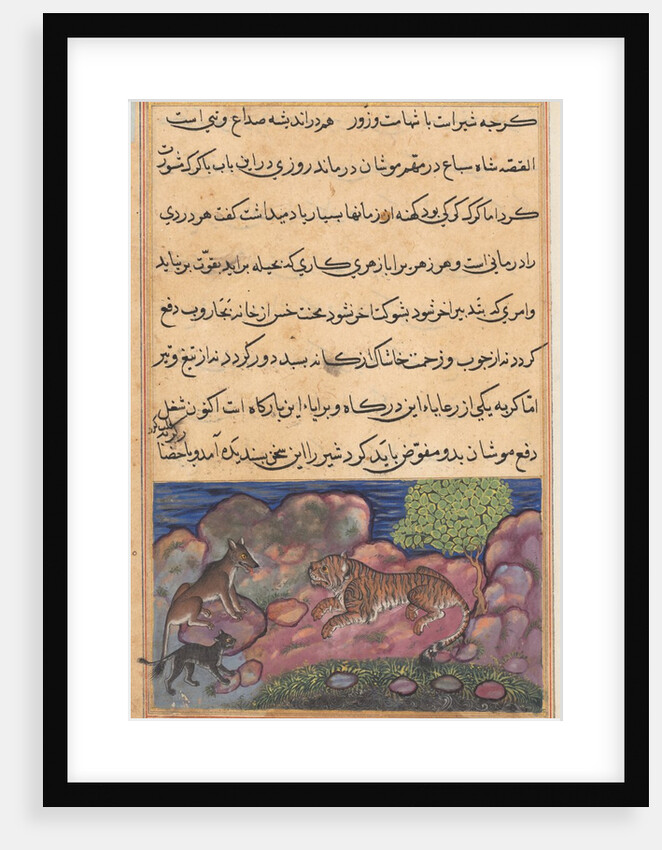 کرجه شیر است با شهامت وزور هم در اندیشه صداع وتبی است
القصه شاه سباع در مقهر موشان درماند روزی در این باب با کرک مشورت
کرد اما کرک کرکی بود کهنه از زمانها بسیار یاد میداشت کفت هر دردی
را درمانی است و هر زهر برا پازهری کاری که بحیله براید بقوّت برنیاید
وامری که بتدبیر اخر شود بشوکت اخر نشود محنت خس از خانه بجاروب دفع
کردد نه از چوب وزحمت خاشاک از کانه بسبد دور کردد نه از تیغ وتیر
امّا کربه یکی از رعایاء این درکاه و برایاء این بارکاه است اکنون شغل
دفع موشان بدو مفوّض باید کرد شیر را این سخن پسندیده آمد و باحضا